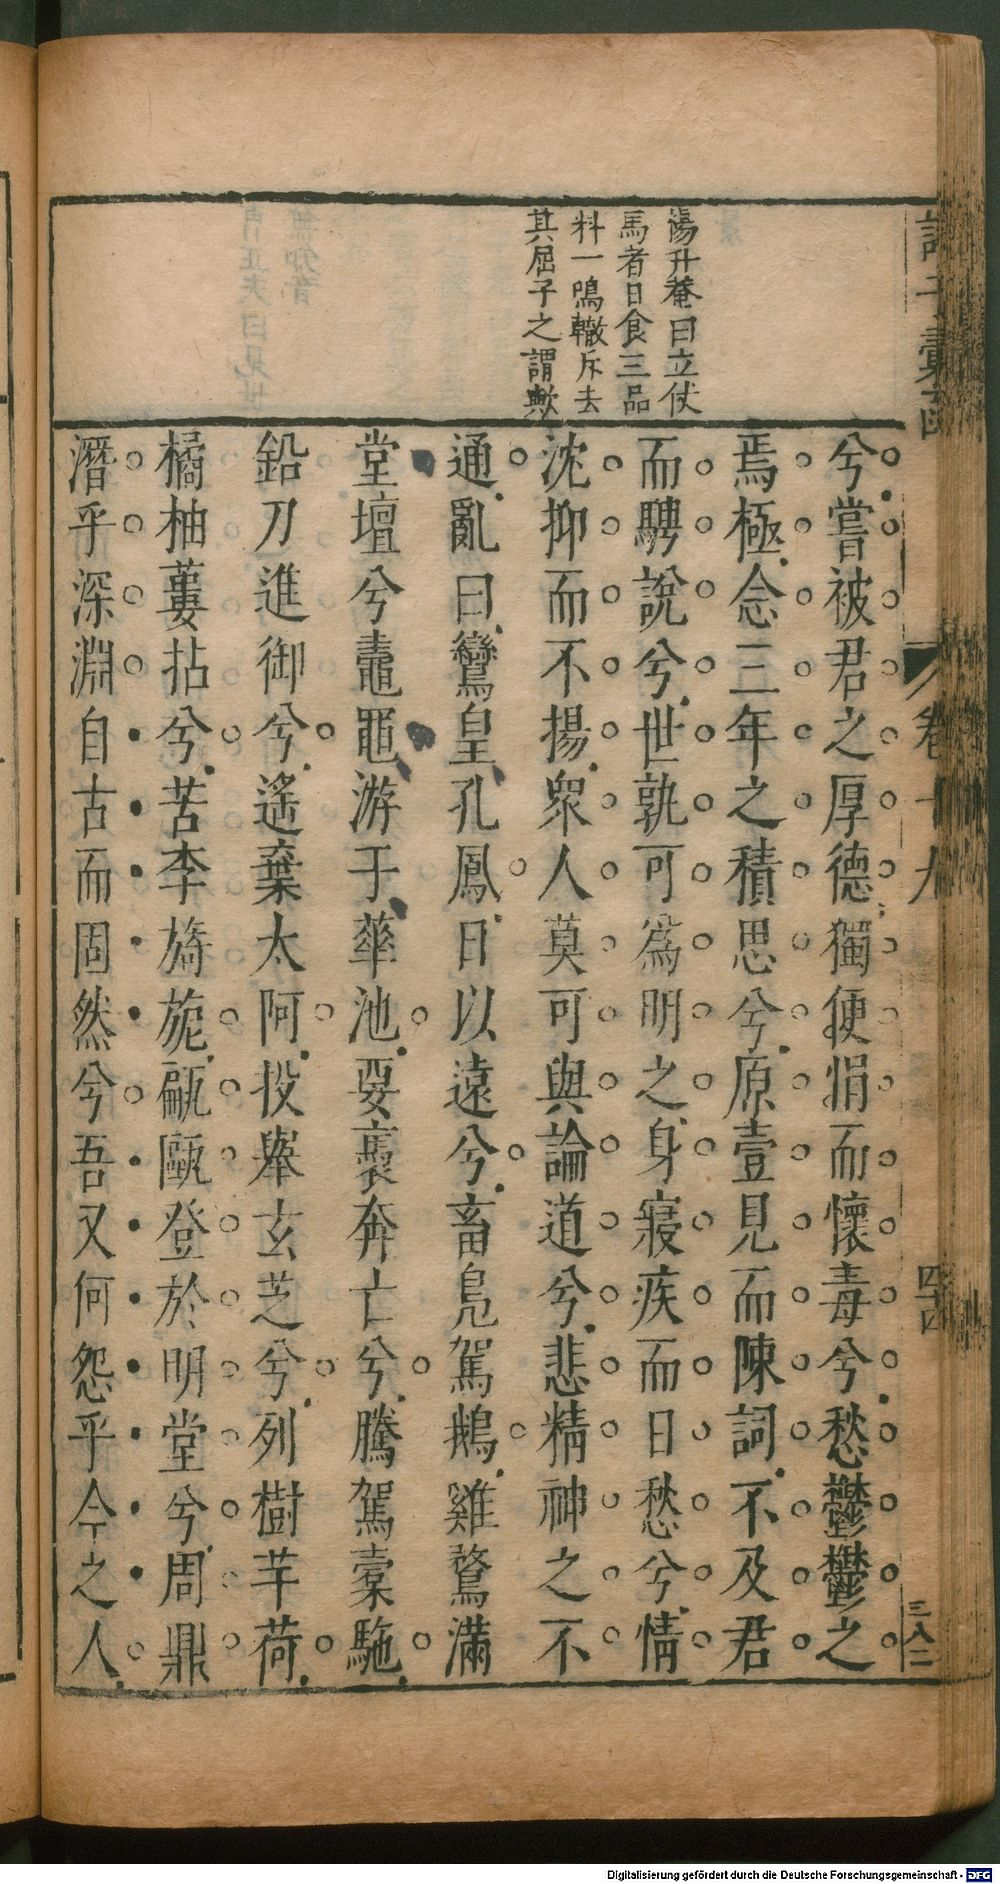 湯升菴曰立仗
馬者日食三品
料一鳴轍斥去
其屈子之謂歟
兮嘗被君之厚德獨便悁而懷毒兮愁鬱鬱之
焉極念三年之積思兮原壹見而陳詞不及君
而騁說兮世孰可爲明之身寢疾而日愁兮情
沈抑而不揚衆人莫可與論道兮悲精神之不
通亂曰鸞皇孔鳳日以遠兮畜鳧駕鵝雞鶩滿
堂壇兮鼃黽游于華池要褭奔亡兮騰駕橐駞
鉛刀進御兮遙棄太阿拔搴玄芝兮列樹芋荷
橘柚萎枯兮苦李旖旎甂甌登於明堂兮周鼎
潛乎深淵自古而固然兮吾又何怨乎今之人
卷十九
四十四
三八二
Digitalisierung gefördert durch die Deutsche Forschungsgemeinschaft - DFG